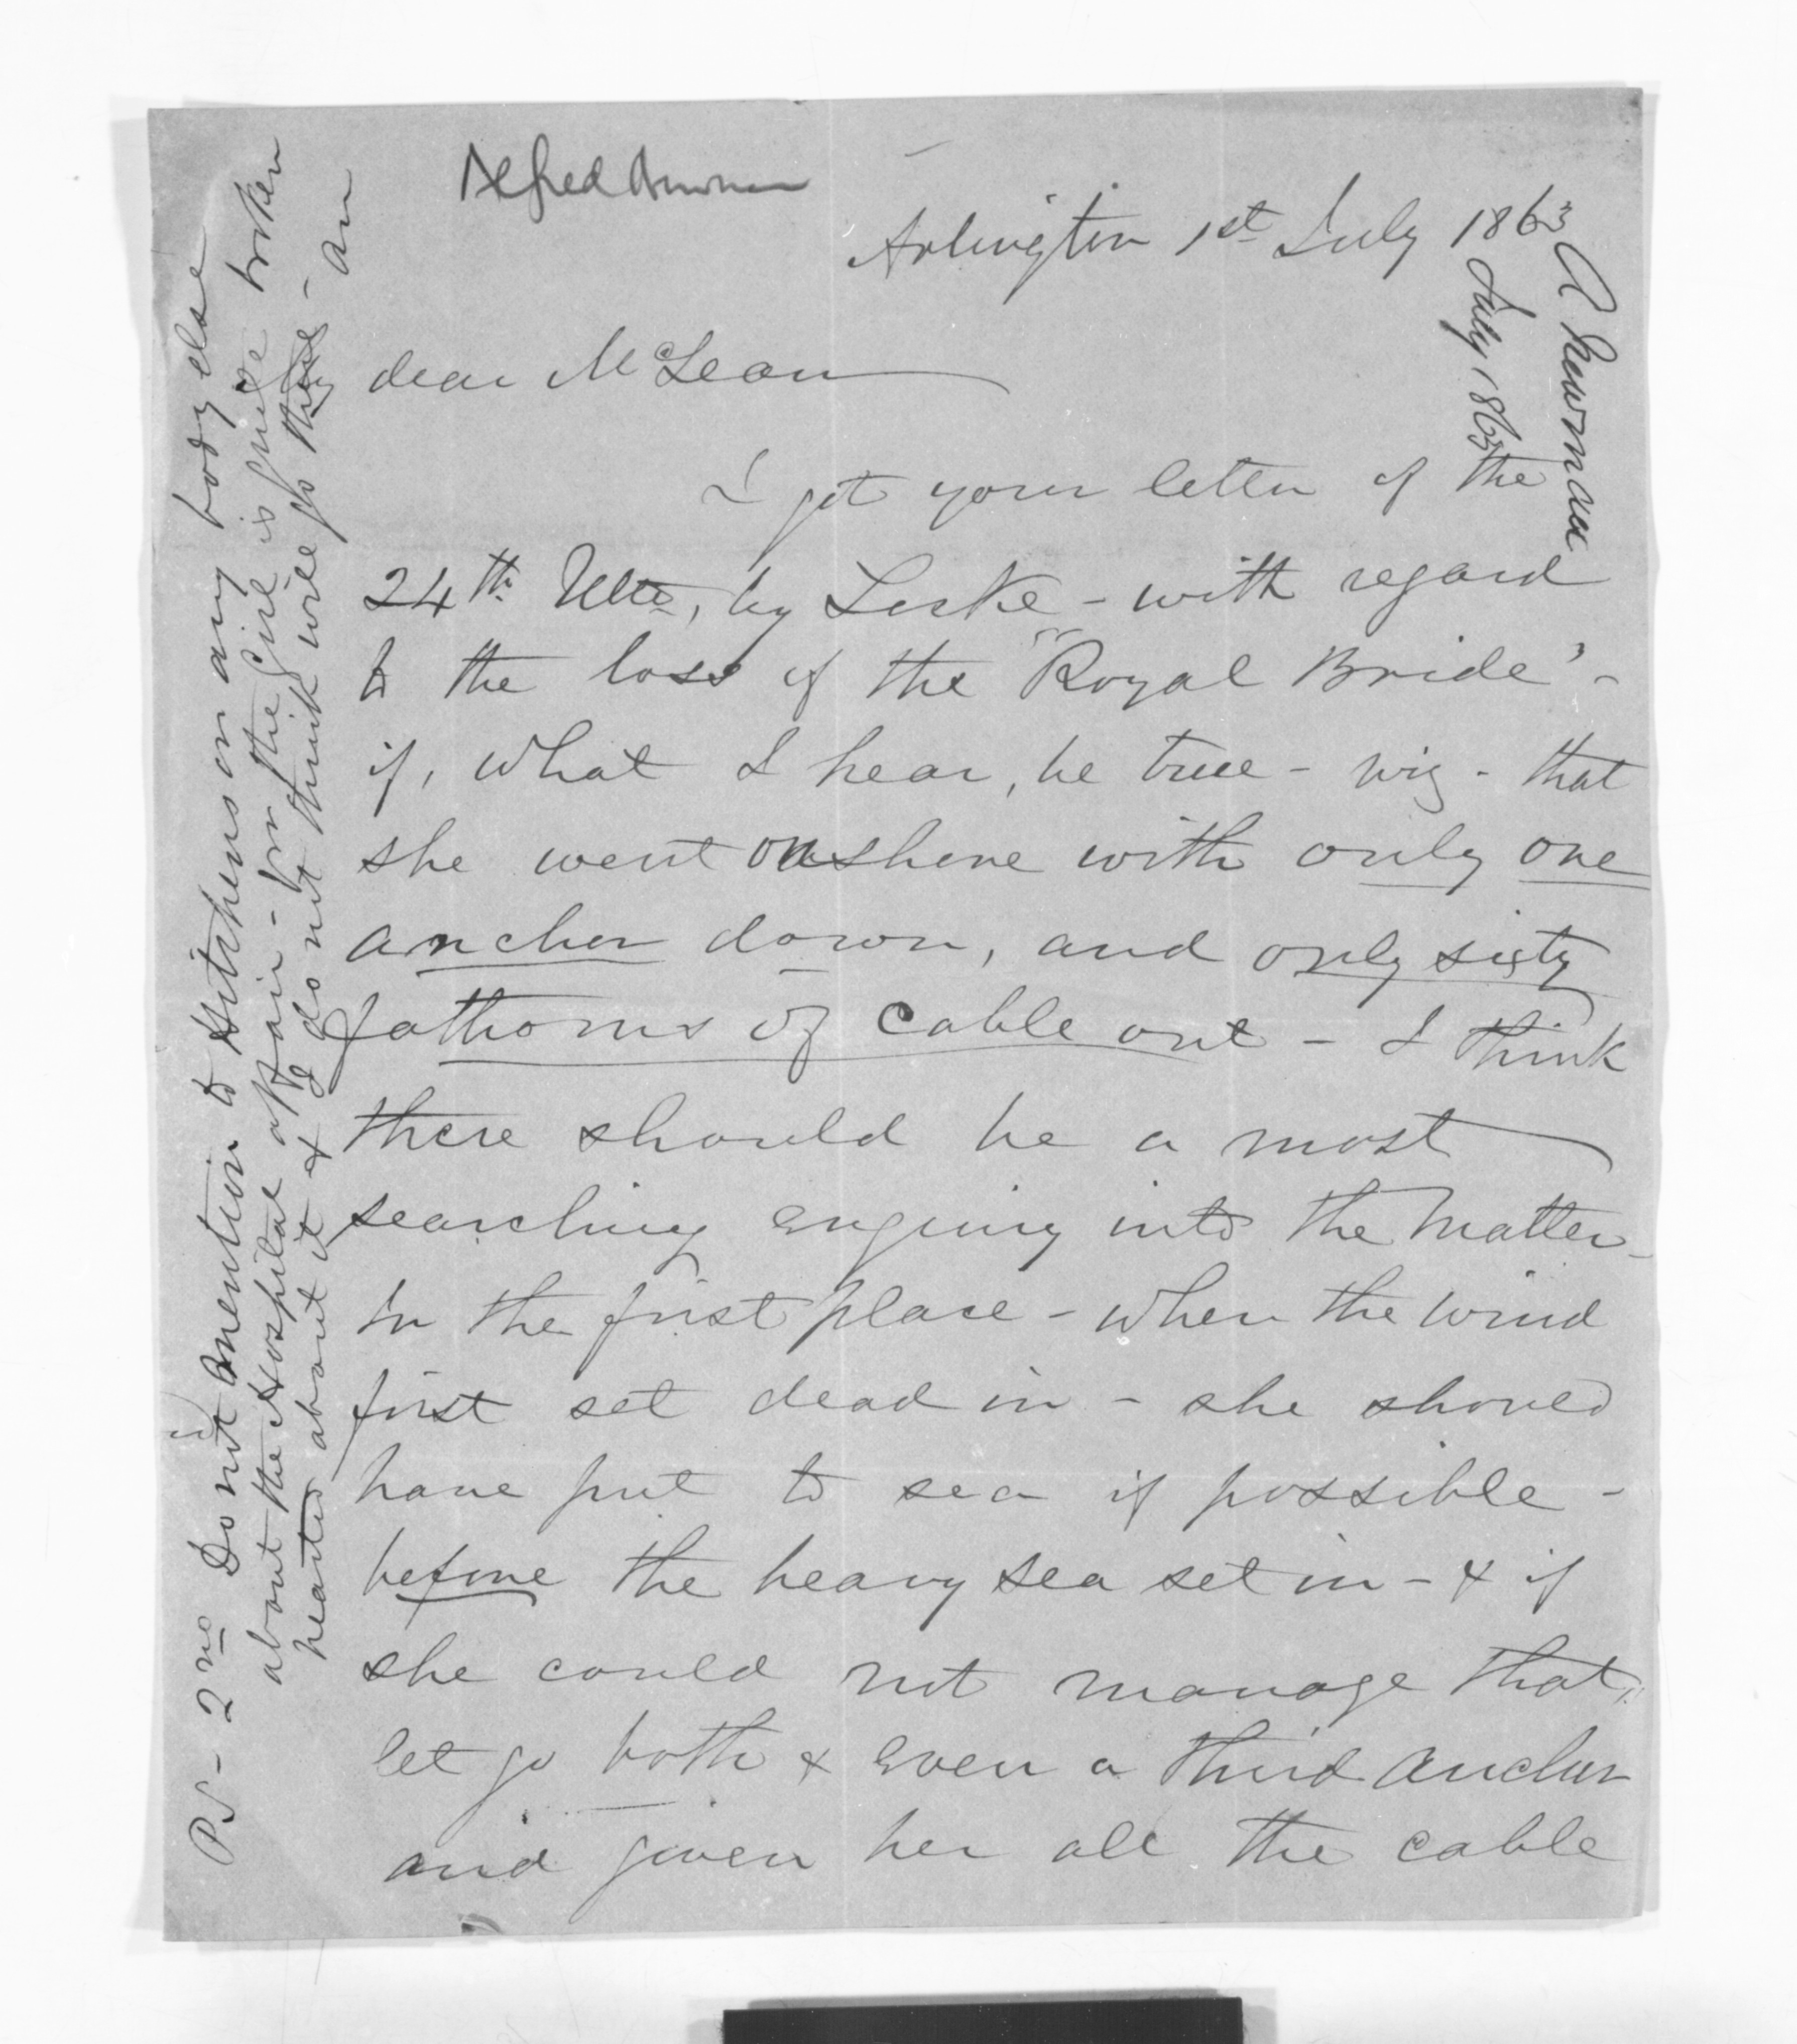 Alfred Newman
Arlington 1st July 1863
A Newman
July 1863
dear McLean
I got your letter of the
24th Ulto, by Leske - with regard
to the loss of the "Royal Bride" -
if, what I hear, be true - viz - that
she went on shore with only one
anchor down, and only sixty
fathoms of cable out - I think
there should be a most
searching enquiry into the matter -
In the first place - when the wind
first set dead in - she should
have put to sea if possible -
before the heavy sea set in - & if
she could not manage that,
let go both & even a third anchor
and given her all the cable
PS - 2nd Do not mention to Hitchens or any body else
about the Hospital affair - for the Girl is quite broken
hearted about it & I do not think will go there - AN